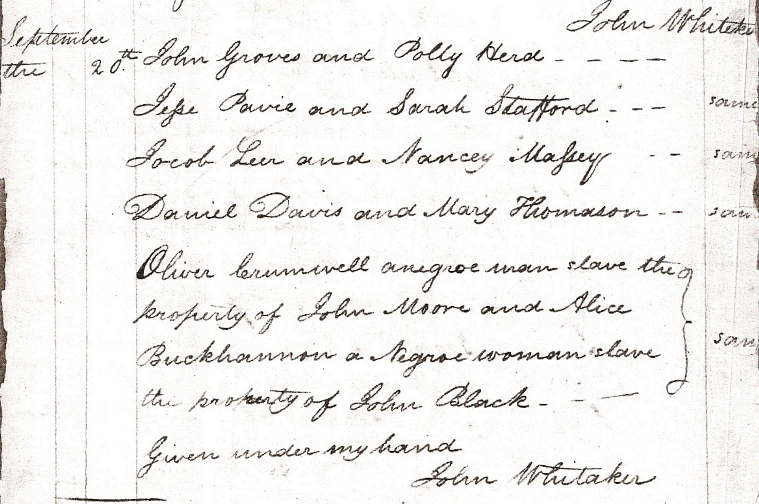 John Whitake
September
the 20th. John Groves and Polly Herd - - - -
Jesse Pavie and Sarah Stafford - - - same
Jocob Leer and Nancey Massey - - sam
Daniel Davis and Mary Thomason - - sam
Oliver Crumwell a negroe man slave the
property of John Moore and Alice
Buckhannon a Negroe woman slave sam
the property of John Black - - -
Given under my hand
John Whitaker